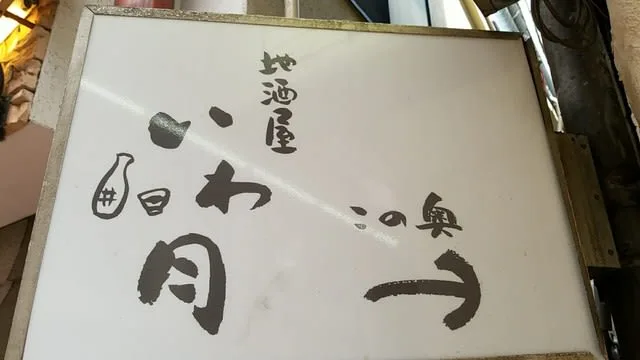 地酒屋
いわ月
この奥